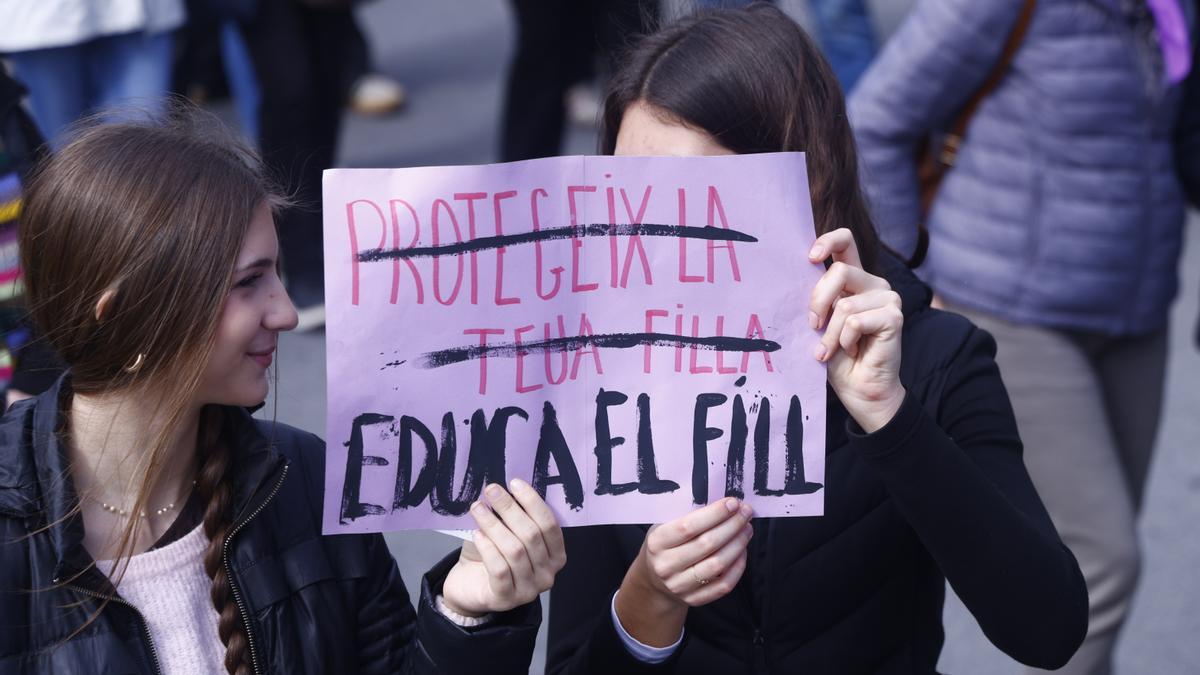 PROTEGEIX LA
TEUA FILLA
EDUCA EL FILL